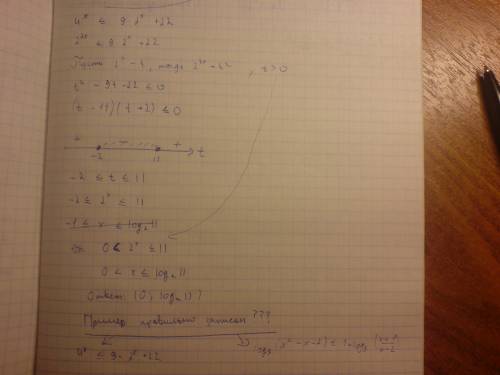 4ˣ ≤ 9·2ˣ + 22
2²ˣ ≤ 9·2ˣ + 22
Пусть 2ˣ = t, тогда 2²ˣ = t², t > 0
t² - 9t - 22 ≤ 0
(t - 11)(t + 2) ≤ 0
+ - + t
-2 11
-2 ≤ t ≤ 11
-2 ≤ 2ˣ ≤ 11
-1 ≤ x ≤ log₂11
0 < 2ˣ ≤ 11
0 < x ≤ log₂11
Ответ: (0; log₂11) ?
Пример правильно записан ???
4ˣ ≤ 9·2ˣ + 22